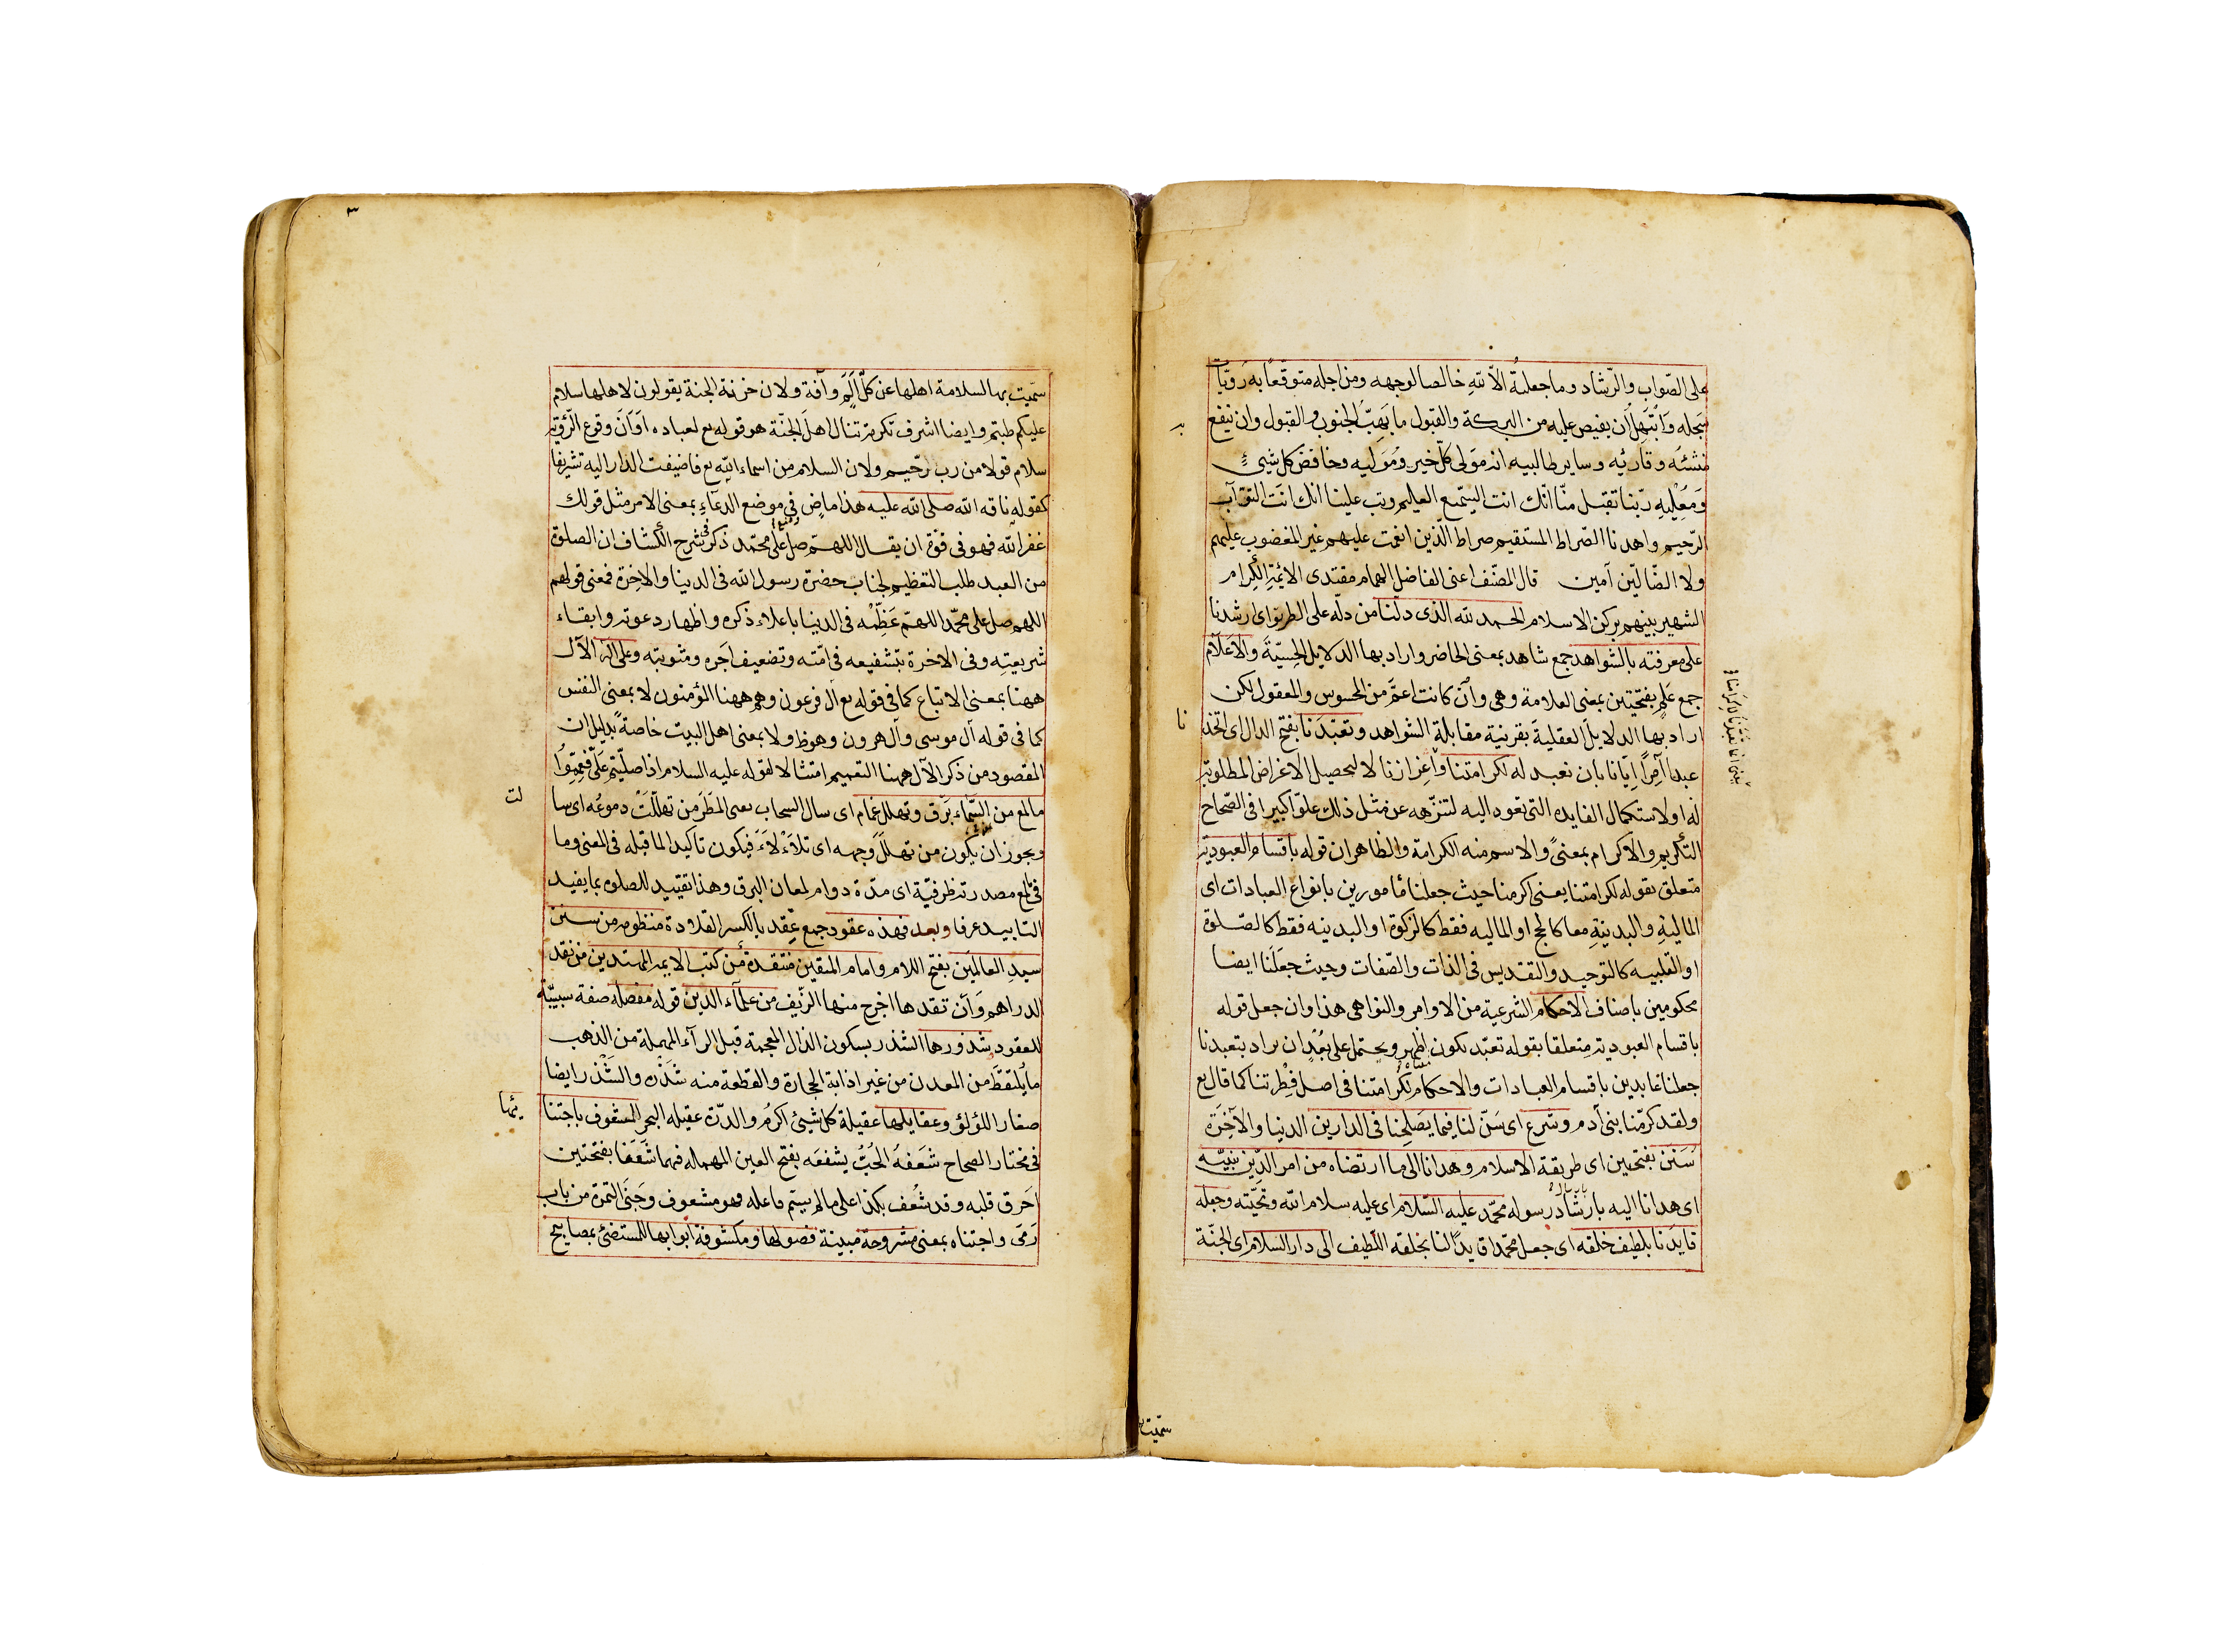 على الصّواب والرّشاد وما جعلته الّا لله خالصا لوجهه ومن اجله متوقعًا به
سجله وَأَبْتَهِلُ أن يفيض عليه من البركة والقبول ما يَهبّ الجنوب والقبول وان ينفع
منشئه وقارئه وساير طالبيه انه مَولى كلّ خير ومُوَليه وخافض كل شيءٍ
وَمُعْلِيهِ ربّنا تقبل منّا انّك انت السّميع العليم وتب علينا انك انت التوّاب
الرّحيم واهدنا الصّراط المستقيم صراط الّذين انعمت عليهم غير المغضوب عليهم
ولا الضّالّين آمين قال المصّنف اعنى الفاضل الهمام مقتدى الائمّة الكِرام
الشهير بينهم بركن الاسلام الحمد لله الذى دلّنا من دلّه على الطريق اى رشدنا
على معرفته بالشواهد جمع شاهد بمعنى الحاضر واراد بها الدلايل الحِسيّة والاَعَلام
جمع عَلَمٍ بفتحتين بمعنى العلامة وهى وأن كانت اعمّ من المحسوس والمعقول لكن
اراد بها الدلايل العقلية بقرينة مقابلة الشواهد وتعبّدَنا بفتح الدال اى اتخذ
نا
عبدا آمِرًا اِيّانا بان نعبد له لكرامتنا وَاعِزازنا لا لتحصيل الاغراض المطلوبة
له او لاستكمال الفايده التى تعود اليه لتنزّهه عن مثل ذلك علوّا كبيرا فى الصّحاح
التكريم والاكرام بمعنىً والاسم منه الكرامة والظاهر ان قوله باقسام العبودية
متعلق بقوله لكرامتنا يعنى اكرمنا حيث جعلنا مأمورين بانواع العبادات اى
الماليةِ والبدنيّةِ معا كالحج او الماليه فقط كالزكوة او البدنيه فقط كالصّلوة
او القلبيه كالتوحيد والتقديس فى الذات والصّفات وحيث جعَلَنا ايضا
محكومين باصناف الاحكام الشرعية من الاوامر والنواهى هذا وان جعل قوله
باقسام العبودية متعلقا بقوله تعبّد نكون اظهر ويحتمل على بُعْدٍ ان يراد بتعبدنا
جعلنا عابدين باقسام العبادات والاحكام لكرامتنا فى اصل فِطْرتنا كما قال تع
ولقد كرّمنا بنى آدم وشرع اى سَنّ لنا فيما يَصَلِحنا فى الدارين الدنيا والآخِرَة
سَنَنَ بفتحتين اى طريقة الاسلام وهدانا الى ما ارتضاه من امر الدّين بنبيّه
اى هدانا اليه بارشاد رسوله محمّد عليه السّلام اى عليه سلام الله وتحيّته وجعله
قايدَنا بلطيف خلقه اى جعل محمّدا قايدًا لنا بخلقه اللّطيف الى دار السّلام اى الجنّة
سمّيت
٣
سمّيت بها السلامة اهلها عن كلّ اَلَمٍ وآفة ولان خزنة الجنة يقولون لاهلها سلام
عليكم طبتم وايضا اشرف تكرمة تنال اهلَ الجنّة هو قوله تع لعباده اَوَانَ وقوع الرّؤية
سلام قولا من رب رحّيم ولان السلام من اسماء الله تع فاضيفت الدار اليه تشريفا
كقوله ناقة الله صلى الله عليه هذا ماضٍ فى موضع الدعاء بمعنى الامر مثل قولك
غفر الله فهو فى قوة ان يقال اللهمّ صل على محمّد ذكر فى شرح الكشاف ان الصلوة
من العبد طلب التعظيم لجناب حضرة رسول الله فى الدينا والاخِرة فمعنى قولهم
اللهم صل على محمّد اللهمّ عَظِّمْه فى الدينا باعلاء ذكره واظهار دعوته وابقاء
شريعتِه وفى الاخرة بتشفيعه فى امّته وتضعيف اجَره ومثوبته وعلى آله الآل
ههنا بمعنى الاتباع كما فى قوله تع آل فرعون وهم ههنا المؤمنون لا بمعنى النفس
كما فى قوله آل موسى وآل هرون وهوظ ولا بمعنى اهل البيت خاصةً بدليل ان
المقصود من ذكر الآل ههنا التعميم امتثالا لقوله عليه السلام اذا صلّيتم علَىّ فعمِّمُوا
ما لمع من السّماء برَق وتهلل غمام اى سال السحاب يعنى المطَرَ من تهلّلَتْ دموعُه اى سا
لت
ويجوز ان يكون من تهلّلَ وَجهه اى تلأَلأَ فيكون تأكيدا لما قبله فى المعنى وما
فى لمع مصدرية ظرفيّة اى مدّة دوام لمعان البرق وهذا تقييد للصلوه بما يفيد
التابيد عرفا وبعد فهذه عقود جمع عِقد بالكسر القلادة منظومه من سنن
سيدِ العالمَين بفتح اللام وامام المتقين مُنتقدة من كتب الايمة المهتدين من نقد
الدراهم وَآن تقدها اخرج منها الزّيف من علماء الدين قوله مفصله صفة سببيّة
للعقود شذورها الشذر بسكون الذال المعجمة قبل الرآء المهملة من الذهب
ما يُلتقَطُ من المعدن من غير اذابة الحجارة والقطعة منه شَذْره والشَذْر ايضا
صغار اللؤلؤ وعقايلها عقيلة كل شيئ اكرمُه والدرّة عقيله البحر المشعوف باجتنا
ئها
فى مختار الصحاح شعَفهُ الحُبُّ يشفعَه بفتح العين المهمله فيهما شَعَفا بفتحتين
احَرق قلبه وقد شُعِف بكذا على ما لم يسمّ فاعله فهو مشعوف وجَنَى الثمرة من باب
رَمَى واجتناه بمعنى مشروحة مبينة فصولها ومكشوفة ابوابها للمستضئ بمصابيح